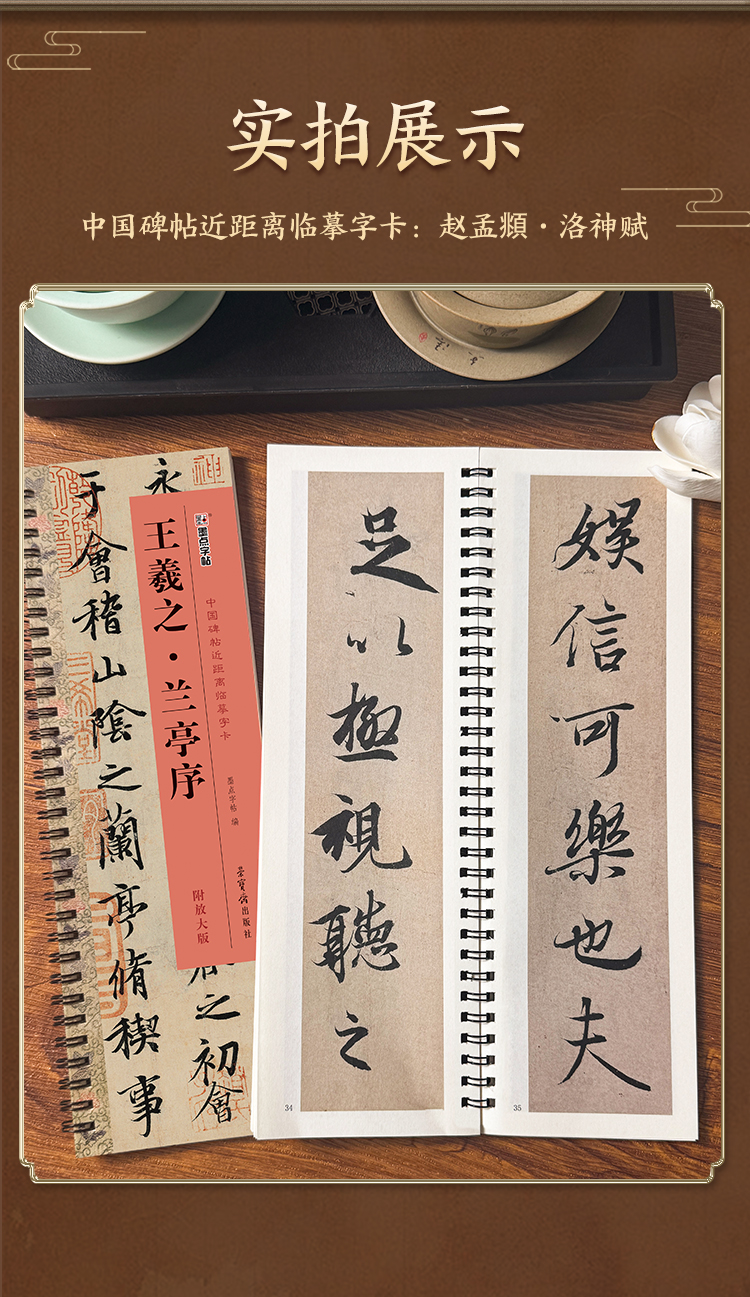 实拍展示
中国碑帖近距离临摹字卡：赵孟頫·洛神赋
永
之初會
于會稽山陰之蘭亭脩稧事
墨点字帖
王羲之·兰亭序
中国碑帖近距离临摹字卡
墨点字帖 编
荣宝斋出版社
附放大版
足以極視聽之
34
娱信可樂也夫
35